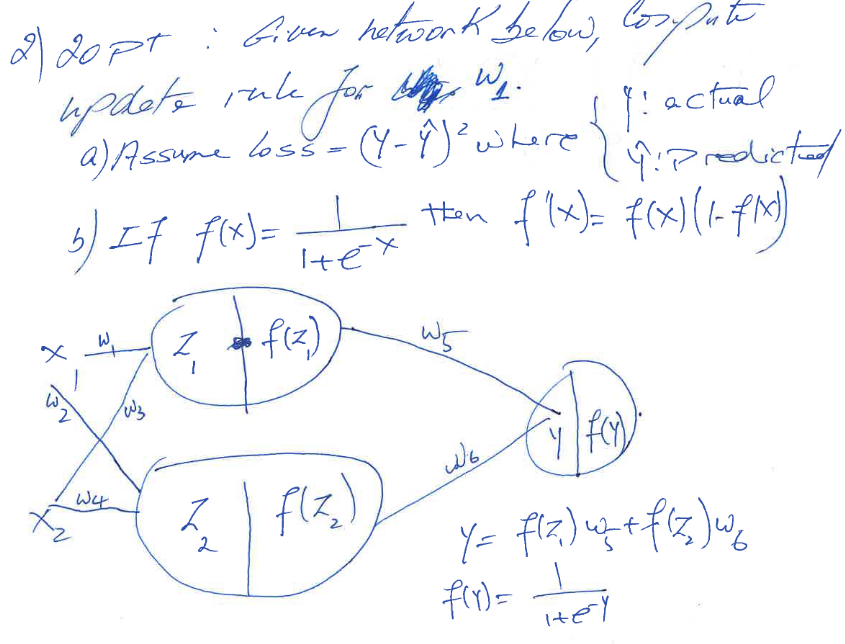 2) 20 pt : Given network below, compute
update rule for W₁.
a) Assume loss = (Y - Ŷ)² where { Y: actual
Ŷ: Predicted
b) If f(x) = 1/(1+e^-x) then f'(x) = f(x)(1-f(x))
X₁ W₁ Z₁ f(Z₁) W₅
W₂ W₃
X₂ W₄ Z₂ f(Z₂) W₆
Y f(Y)
Y = f(Z₁)W₅ + f(Z₂)W₆
f(Y) = 1/(1+e^-Y)